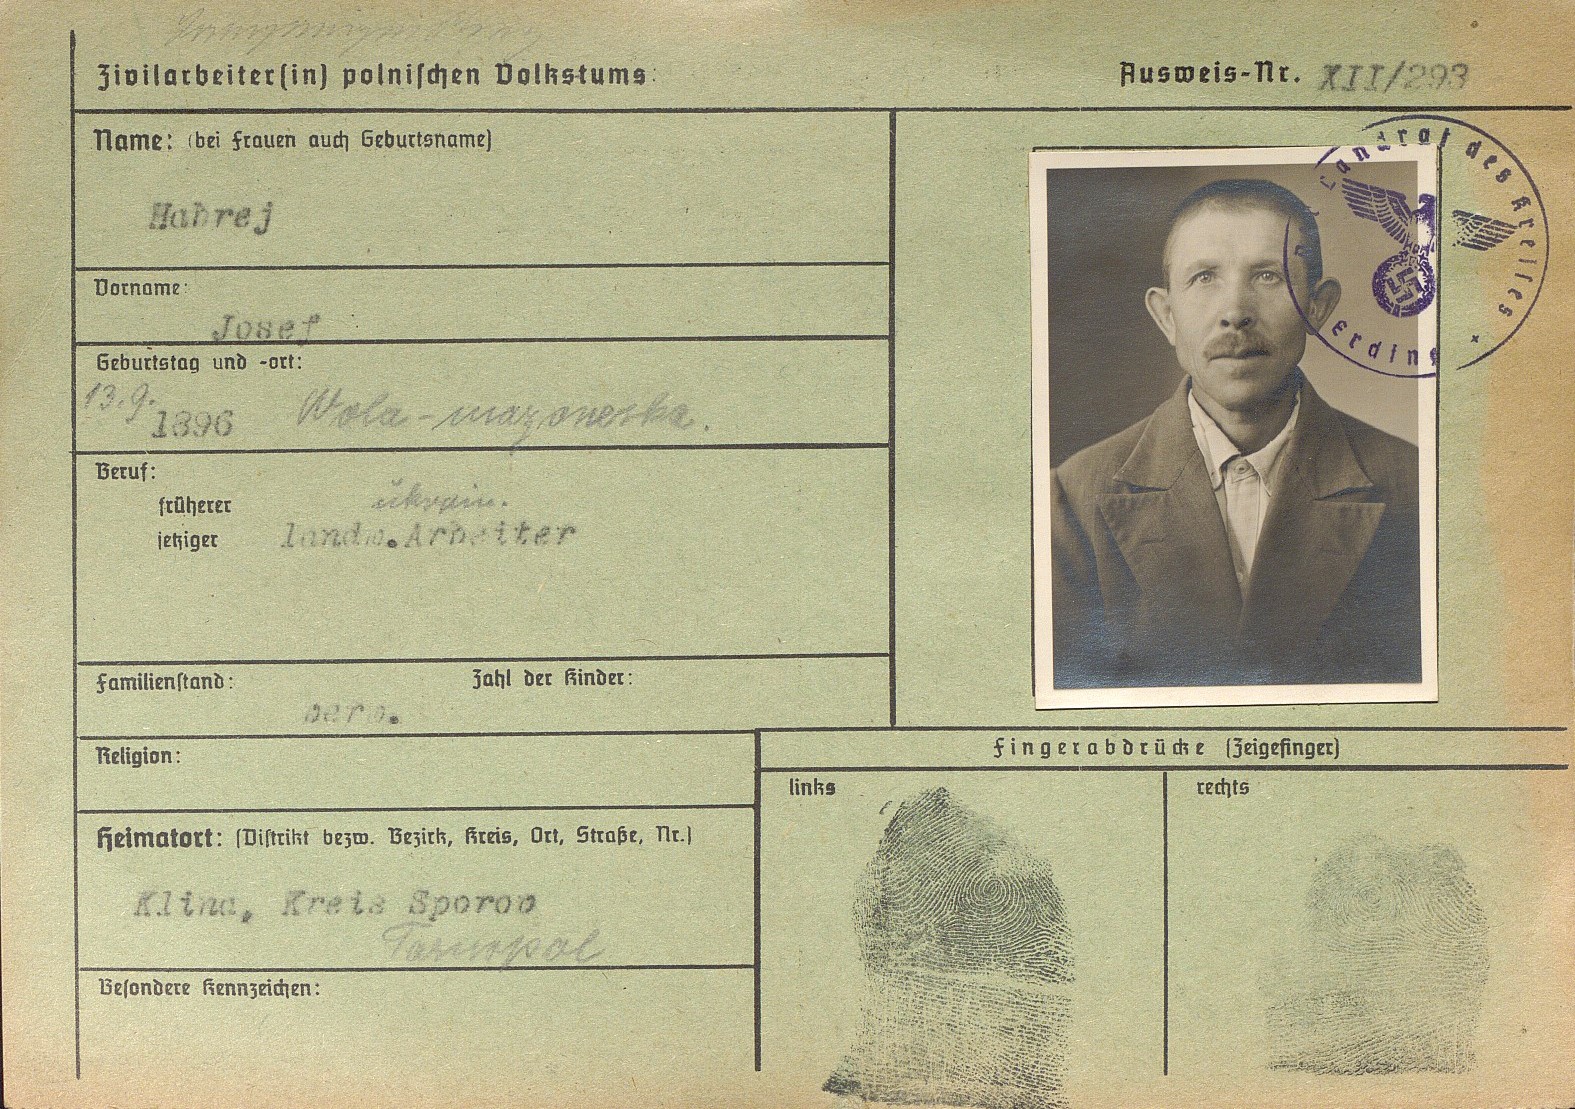 Zivilarbeiter(in) polnischen Volkstums:
Ausweis-Nr. XII/293
Name: (bei Frauen auch Geburtsname)
Habrej
Vorname:
Josef
Geburtstag und -ort:
13.9. 1896 Wola-mazoneska.
Beruf:
früherer ukrain.
jetziger landw. Arbeiter
Familienstand: Zahl der Kinder:
verw.
Religion:
Heimatort: (Distrikt bezw. Bezirk, Kreis, Ort, Straße, Nr.)
Klina, Kreis Sporov
Tarnopol
Besondere Kennzeichen:
Landrat des Kreises Erding
Fingerabdrücke (Zeigefinger)
links rechts